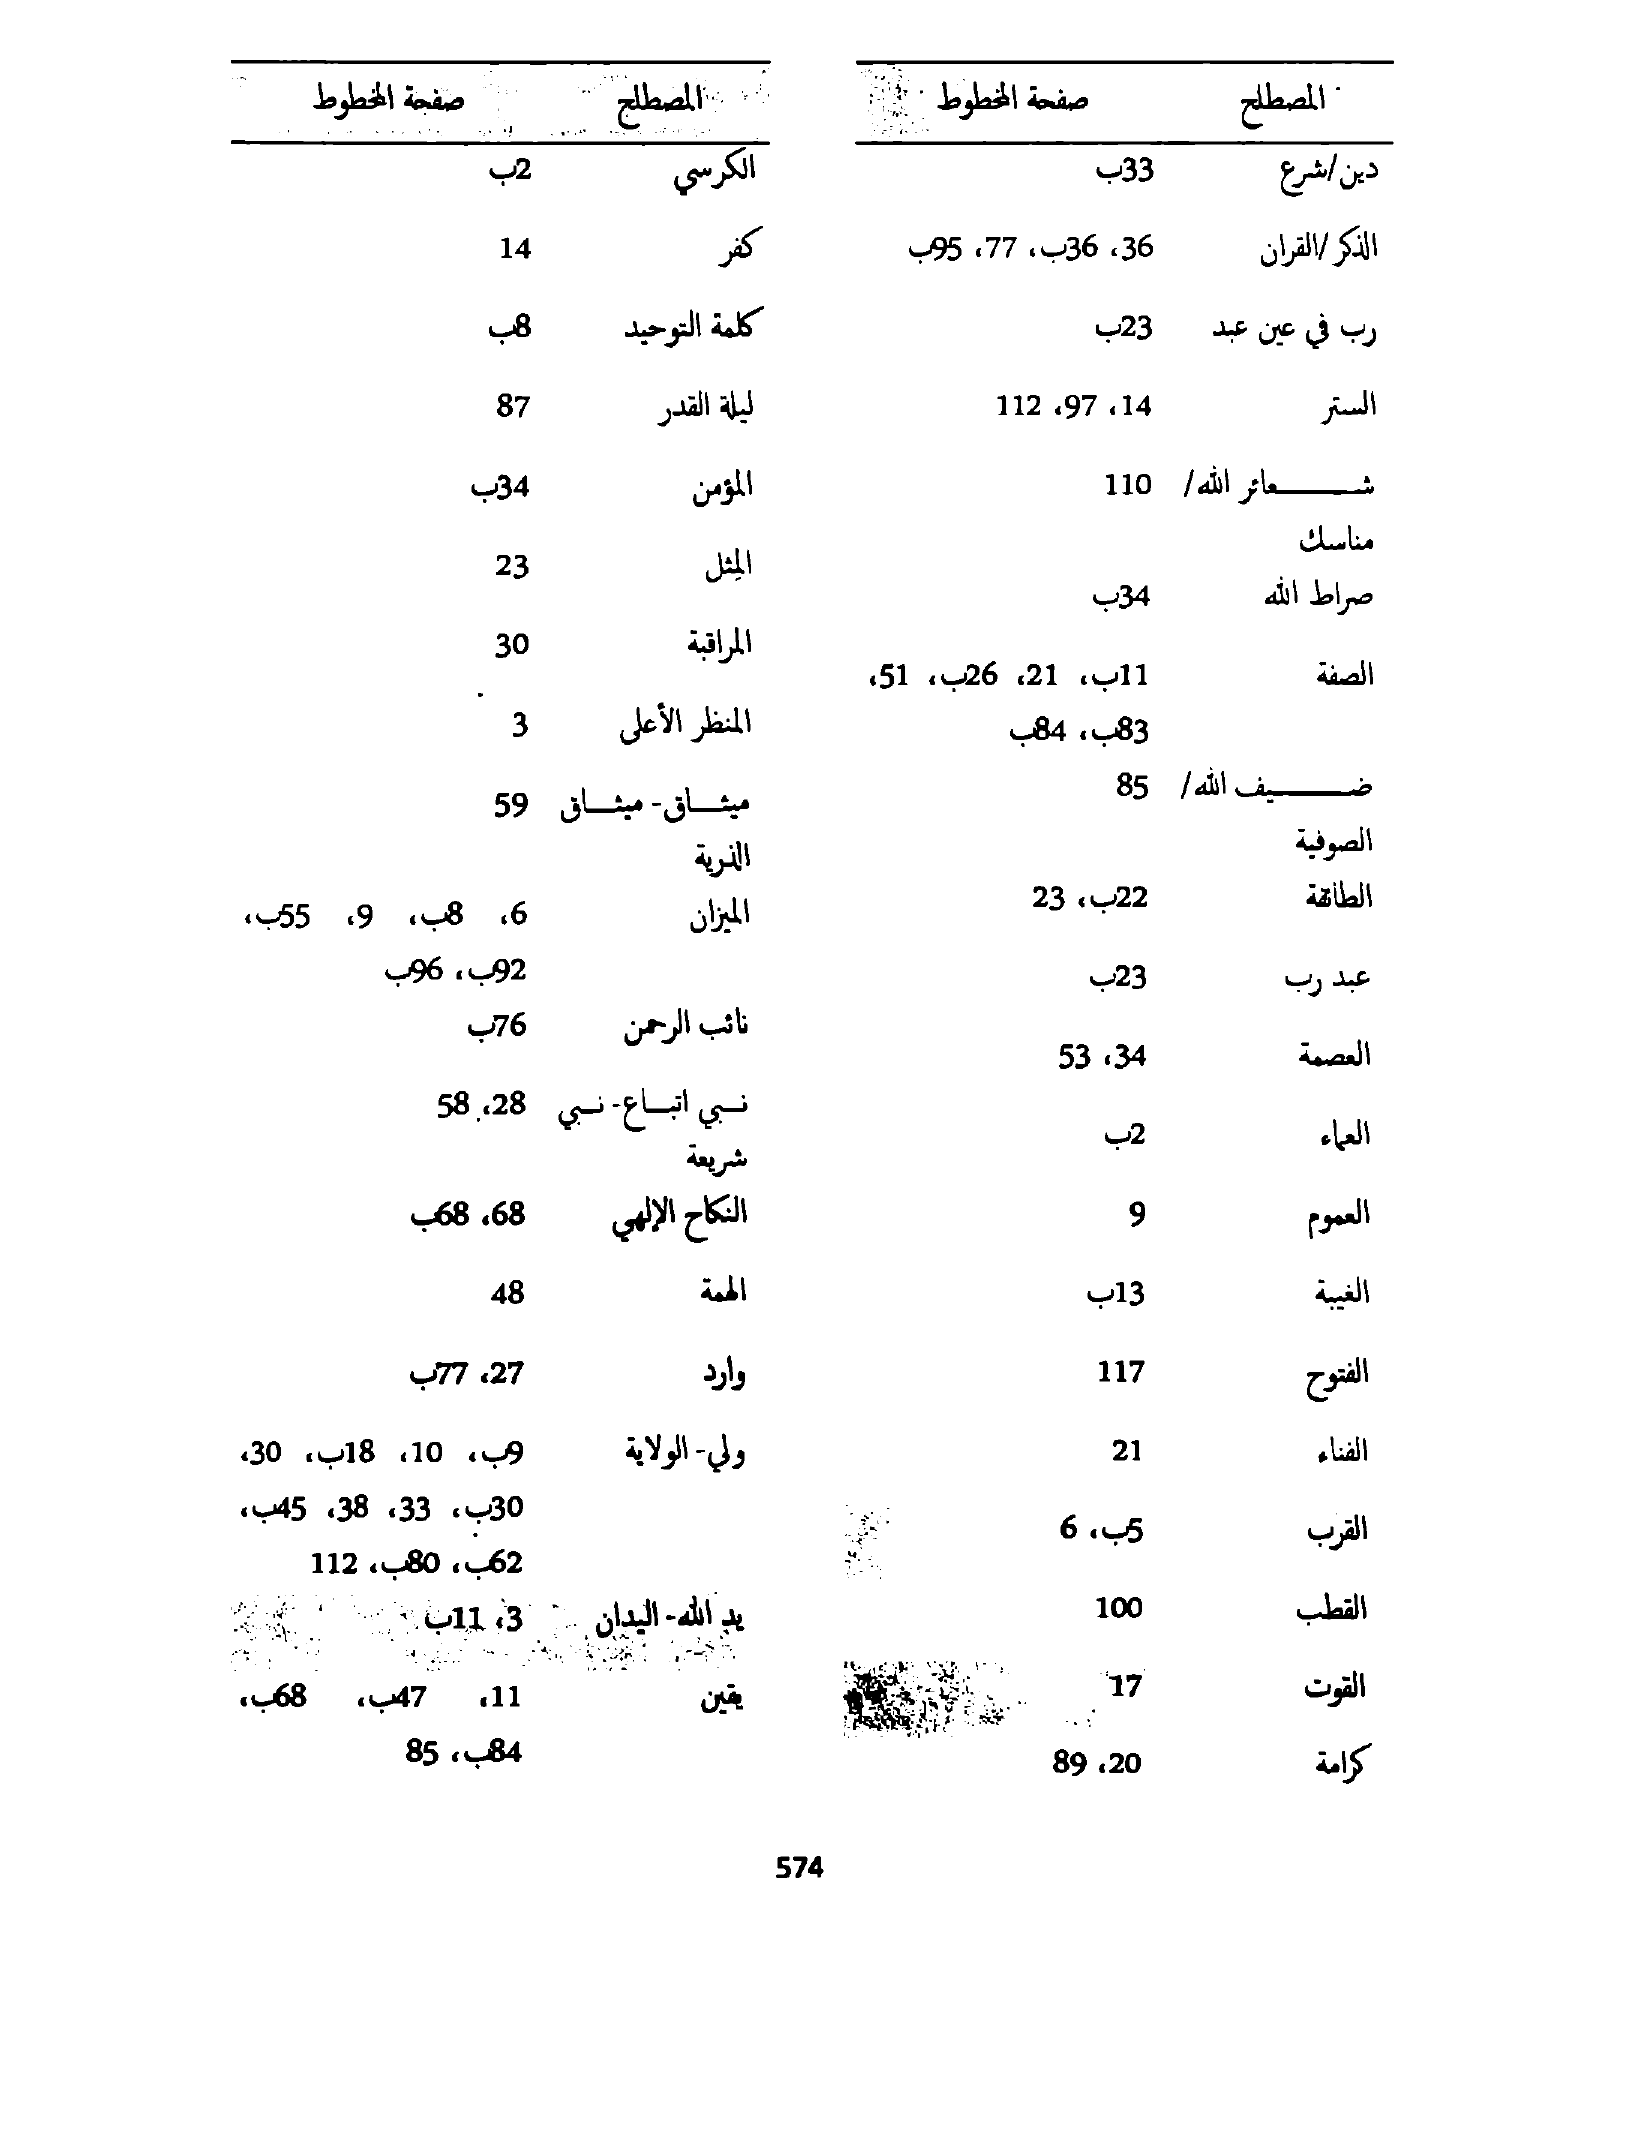 المصطلح صفحة المخطوط
دين/شرع 33ب
الذكر/القران 36، 36ب، 77، 95ب
رب في عين عبد 23ب
الستر 14، 97، 112
شـــعائر الله/ 110
مناسك
صراط الله 34ب
الصفة 11ب، 21، 26ب، 51،
83ب، 84ب
ضـــيف الله/ 85
الصوفية
الطائفة 22ب، 23
عبد رب 23ب
العصمة 34، 53
العماء 2ب
العموم 9
الغيبة 13ب
الفتوح 117
الفناء 21
القرب 5ب، 6
القطب 100
القوت 17
كرامة 20، 89
المصطلح صفحة المخطوط
الكرسي 2ب
كفر 14
كلمة التوحيد 8ب
ليلة القدر 87
المؤمن 34ب
المِثل 23
المراقبة 30
المنظر الأعلى 3
ميثـــاق- ميثـــاق 59
الذرية
الميزان 6، 8ب، 9، 55ب،
92ب، 96ب
نائب الرحمن 76ب
نـــبي اتبـــاع- نـــبي 28، 58
شريعة
النكاح الإلهي 68، 68ب
الهمة 48
وارد 27، 77ب
ولي- الولاية 9ب، 10، 18ب، 30،
30ب، 33، 38، 45ب،
62ب، 80ب، 112
يد الله- اليدان 3، 11ب
يقين 11، 47ب، 68ب،
84ب، 85
574